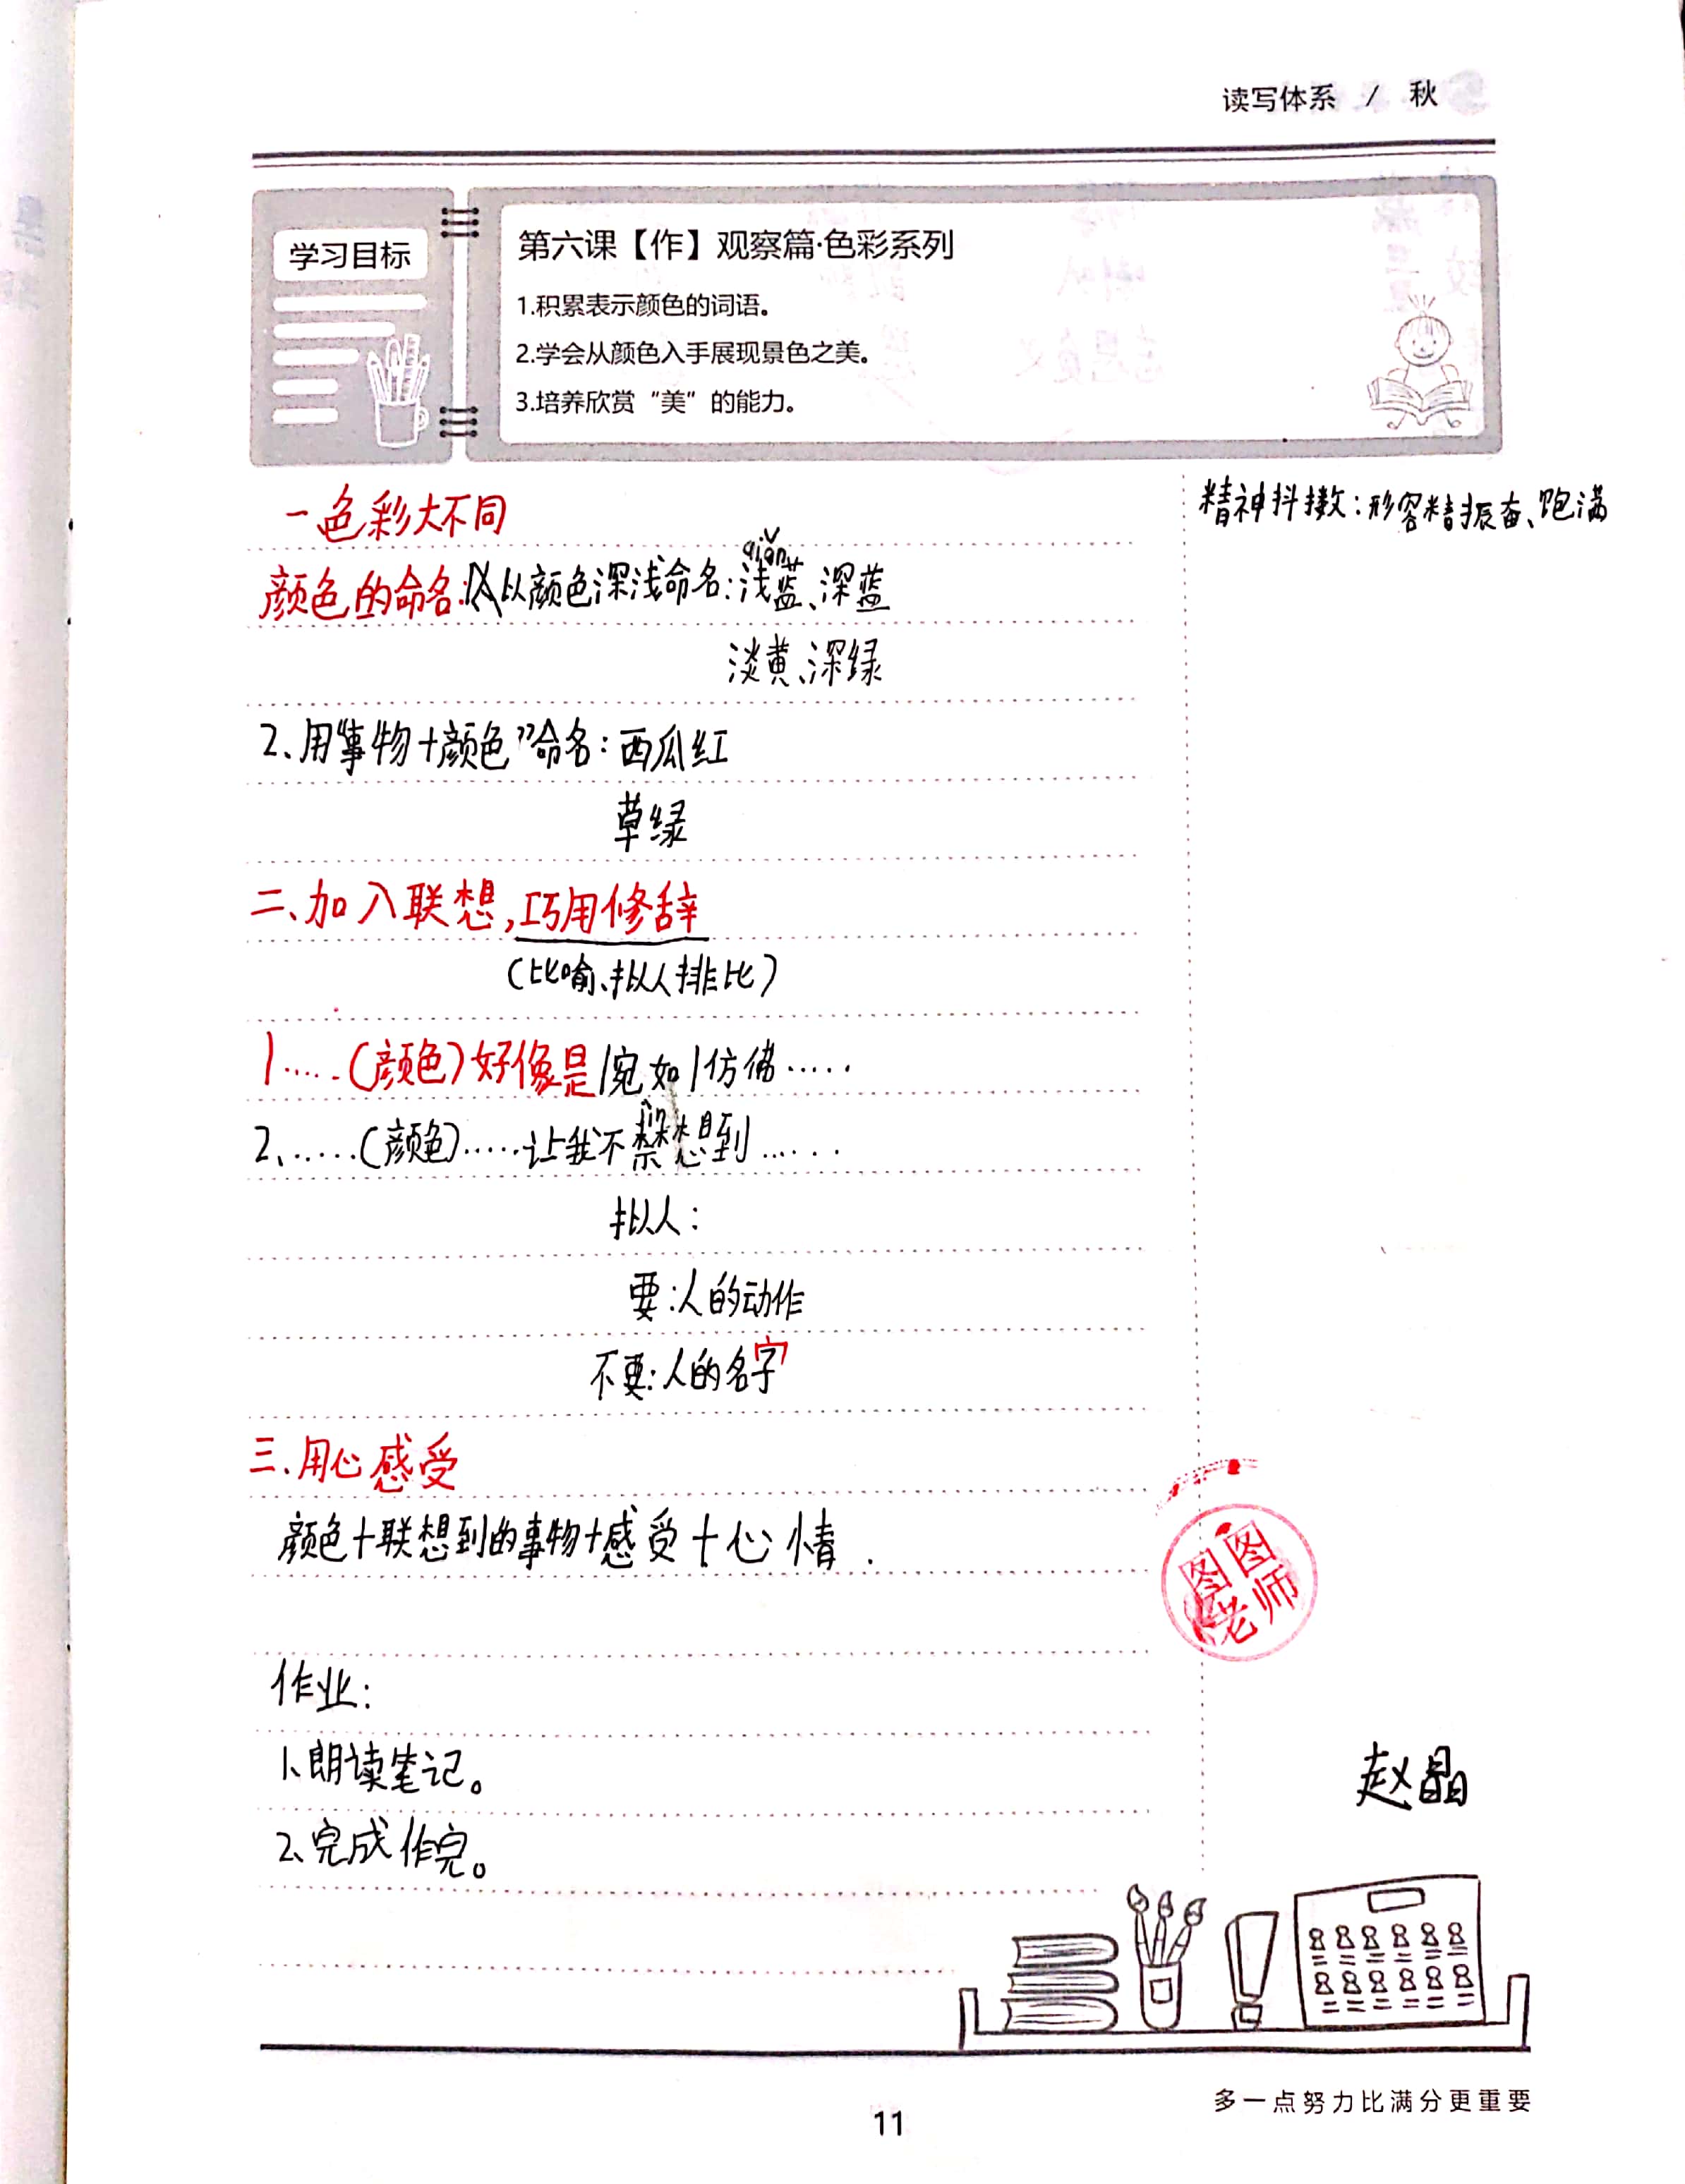 读写体系 / 秋
学习目标
第六课【作】观察篇·色彩系列
1.积累表示颜色的词语。
2.学会从颜色入手展现景色之美。
3.培养欣赏“美”的能力。
精神抖擞:形容精振奋、饱满
一色彩大不同
qiǎn
颜色的命名:从颜色深浅命名:浅蓝、深蓝
淡黄、深绿
2、用“事物+颜色”命名:西瓜红
草绿
二、加入联想,巧用修辞
(比喻、拟人排比)
1.....(颜色)好像是/宛如/仿佛.....
jīn
2、.....(颜色).....让我不禁想到.....
拟人:
要:人的动作
不要:人的名字
三.用心感受
颜色+联想到的事物+感受+心情.
图图老师
作业:
1、朗读笔记。
2、完成作完。
赵晶
多一点努力比满分更重要
11